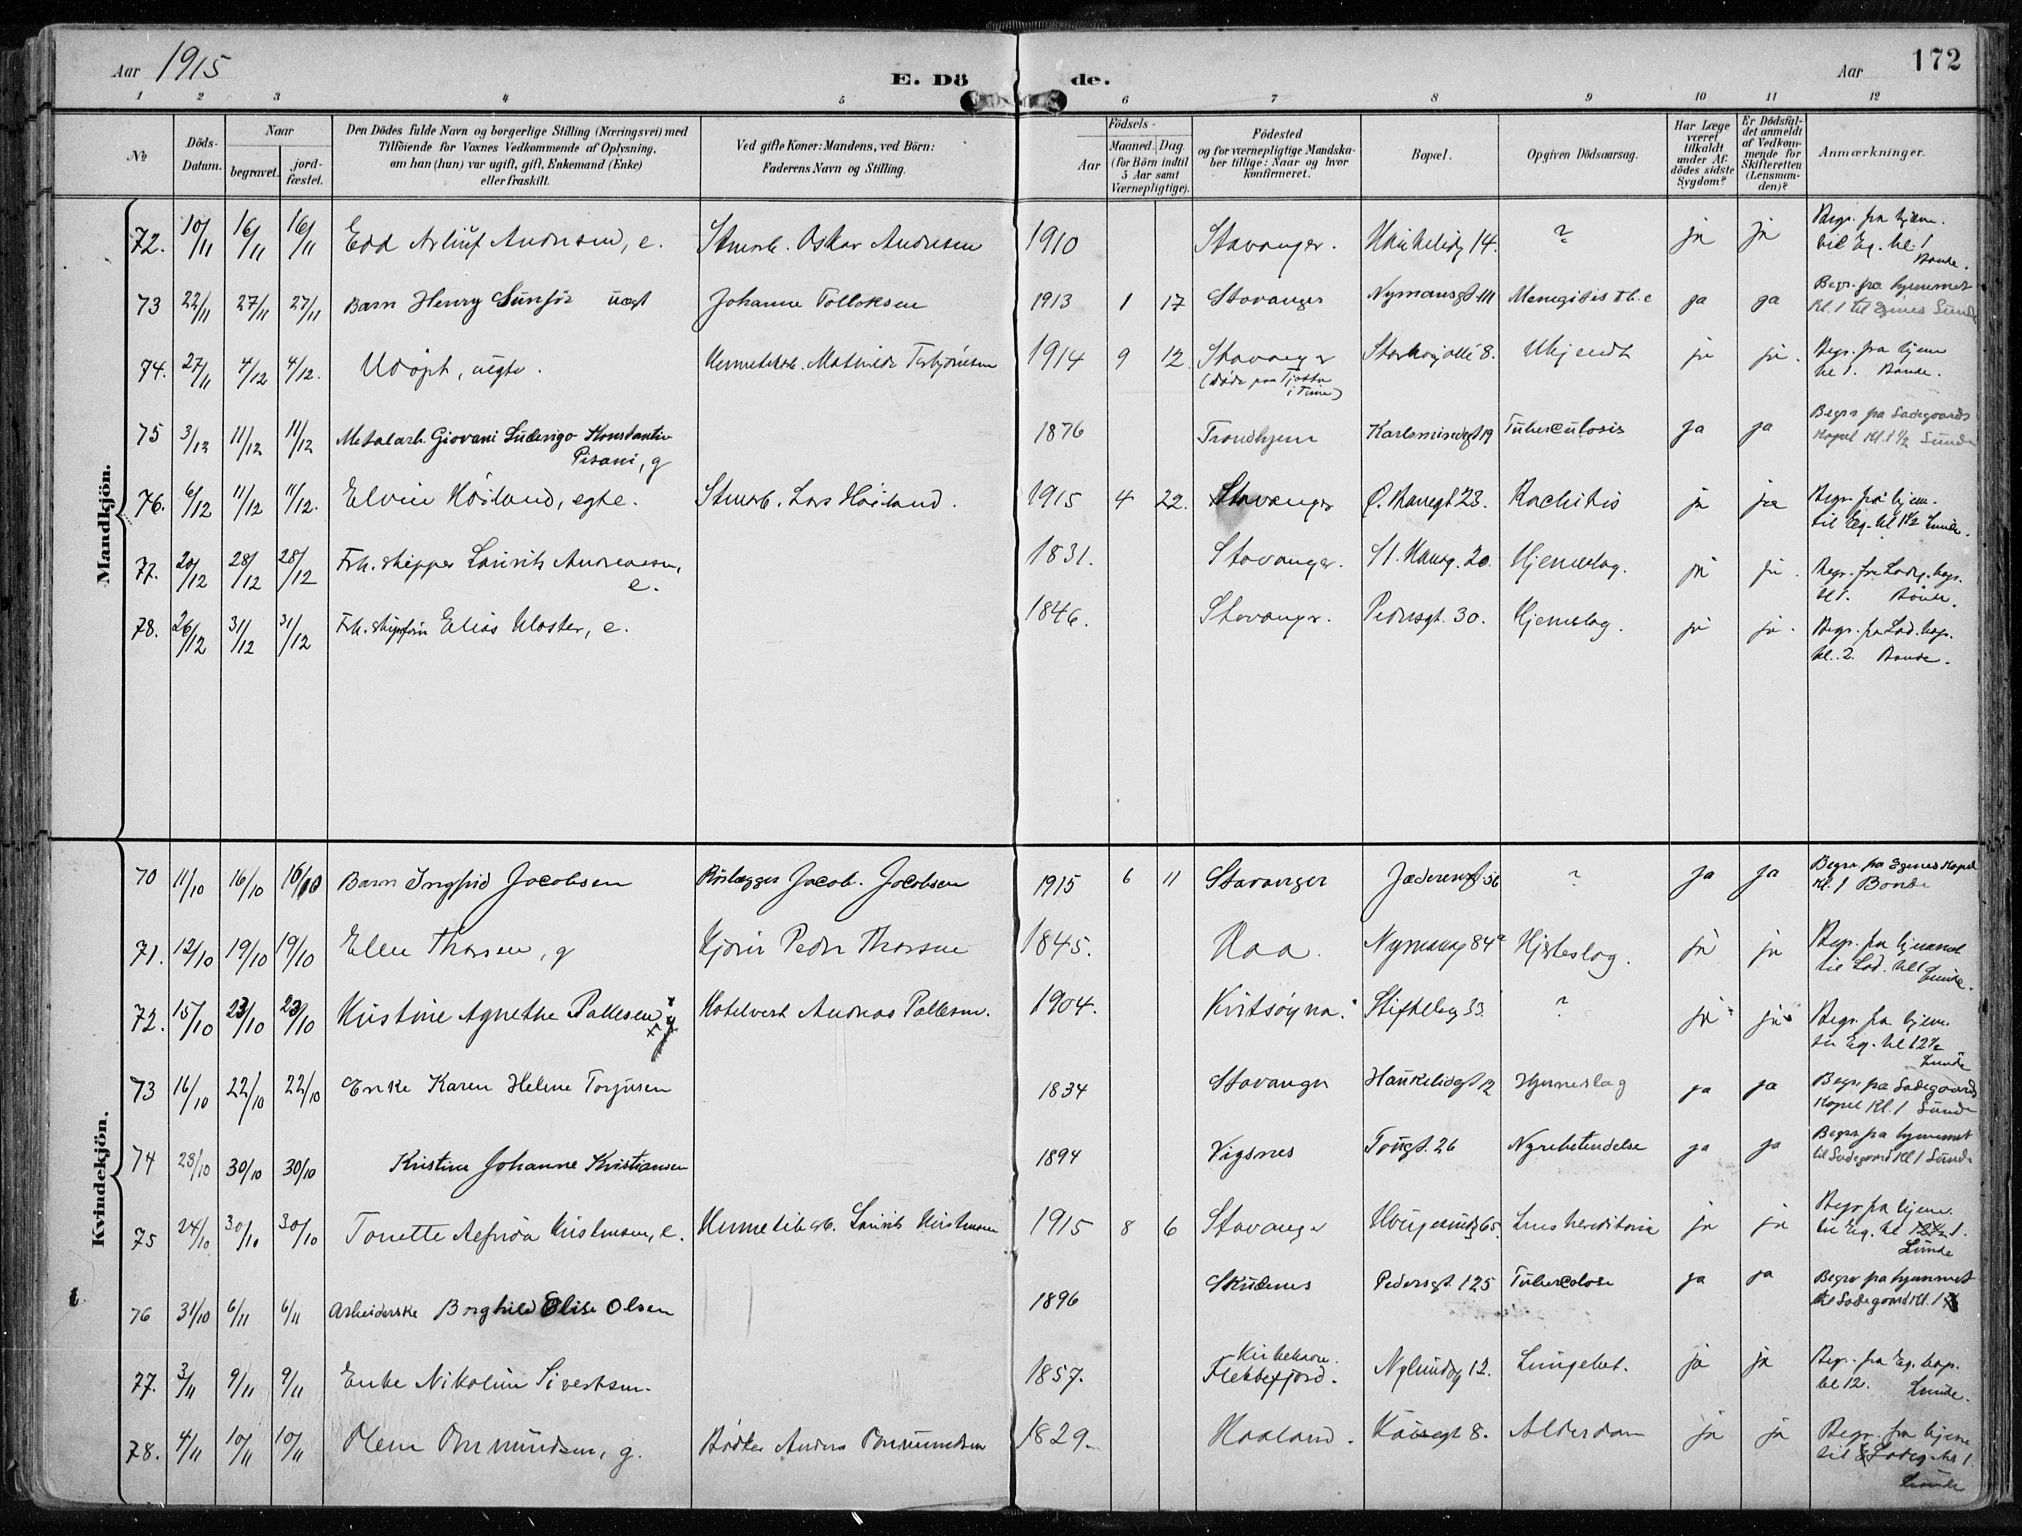 Aar 1915
E. Dö de.
Aar
172
1 2 3 4 5 6 7 8 9 10 11 12
No
Döds-Datum.
Naar
begravet.
jord-fæstet.
Den Dödes fulde Navn og borgerlige Stilling (Næringsvei) med
Tilföiende for Voxnes Vedkommende af Oplysning,
om han (hun) var ugift, gift, Enkemand (Enke)
eller fraskilt.
Ved gifte Koner: Mandens, ved Börn:
Faderens Navn og Stilling.
Födsels-
Aar
Maaned. Dag.
(for Börn indtil
5 Aar samt
Værnepligtige).
Födested
og for værnepligtige Mandska-
ber tillige: Naar og hvor
konfirmeret.
Bopæl.
Opgiven Dödsaarsag.
Har Læge
været
tilkaldt
under Af-
dödes sidste
Sygdom?
Er Dödsfal-
det anmeldt
af Vedkom-
mende for
Skifteretten
(Lensman-
den)?
Anmærkninger.
Mandkjön.
72. 10/11 16/11 16/11 Edd Andresen, e. Oskar Andresen 1910 Stavanger. 14. ? ja ja Begr. fra hjem. til Eg. kl. 1 Bonde.
73 22/11 27/11 27/11 Barn Henry uegt Johanne 1913 1 17 Stavanger Nymansgt. 111 Menegitis tb.c ja ja Begr. fra hjemmet Kl. 1 til Egenes Sunde
74. 27/11 4/12 4/12. Udöpt, uegte. Mathilde 1914 9 12. Stavanger (döde paa Tjøtta i Time) 8. Ukjendt ja ja. Begr. fra hjem kl 1. Bonde.
75 3/12 11/12 11/12 Metalarb. Giovani Luderigo Konstantin Pisani, g 1876 Trondhjem Karlsminnegt 19 Tuberculosis ja ja Begr fra Ladegaards Kapel Kl. 1 1/2 Sunde
76. 6/12 11/12 11/12. Elvin Höiland, egte. Lars Höiland. 1915 4 22. Stavanger 23. Rachitis ja ja Begr. fra hjem. til Eg. kl 1 1/2 Lunde.
77. 20/12 28/12 28/12 Frh. skipper Laurits Andreasen, e. 1831. Stavanger. St. Hansg. 20. Hjerneslag. ja ja. Begr. fra Ladeg. kap. kl 1. Bonde.
78. 26/12 31/12 31/12 Frh. Elias Kloster, e. 1846. Stavanger. Pedersgt. 30. Hjerneslag. ja ja. Begr. fra Lad. kap. kl. 2. Bonde.
Kvindekjön.
70 11/10 16/10 16/10 Barn Ingfrid Jacobsen Rörlægger Jacob. Jacobsen 1915 6 11 Stavanger Jæderengt 56 ? ja ja Begr. fra Egenes Kapel Kl. 1 Bonde
71. 12/10 19/10 19/10 Elen Thorsen, g Peder Thorsen 1845. Haa. 84a Hjerteslag. ja ja Begr. fra hjemmet til Lad. kl 1 Lunde.
72. 15/10 23/10 23/10 Kristine Agnethe Pallesen Hotelvert Andreas Pallesen. 1904. Kvitsøyna. 33. ? ja ja Begr. fra hjem. til Eg. kl 12 1/2 Lunde
73 16/10 22/10 22/10 Enke Karen Helene Torjusen 1834 Stavanger Haukelidgt 12 Hjerneslag ja ja Begr. fra Ladegaards Kapel Kl. 1 Sunde
74 23/10 30/10 30/10 Kristine Johanne Kristiansen 1894 Vigsnes Tougt. 26 Nyrebetendelse ja ja Begr. fra hjemmet til Ladegaard Kl 1 Sunde
75 24/10 30/10 30/10 Tonette e. Laurits 1915 8 6 Stavanger 65. Lues hereditaria ja ja Begr fra hjem. til Eg. kl 12 1/2 1. Lunde
76 31/10 6/11 6/11 Arbeiderske Borghild Elise Olsen 1896 Skudenes Pedersgt. 125 Tuberculose ja ja Begr fra hjemmet til Ladegaard Kl. 1
77. 3/11 9/11 9/11 Enke Nikoline Sivertsen. 1857. Flekkefjord. Nylundsg 12. Lungebet. ja ja Begr. fra Eg. kap. kl 12. Lunde.
78. 4/11 10/11 10/11 Olene Ommundsen, g. Bödker Anders Ommundsen 1829. Haaland. 8. Alderdom ja ja Begr. fra hjem til Ladeg. kl 1. Lunde